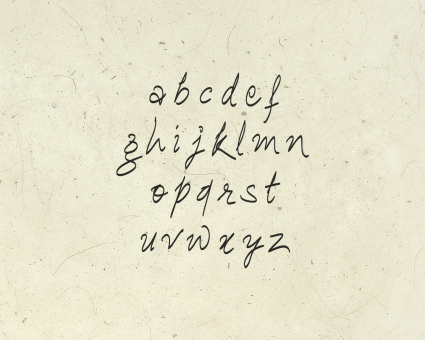 a b c d e f
g h i j k l m n
o p q r s t
u v w x y z